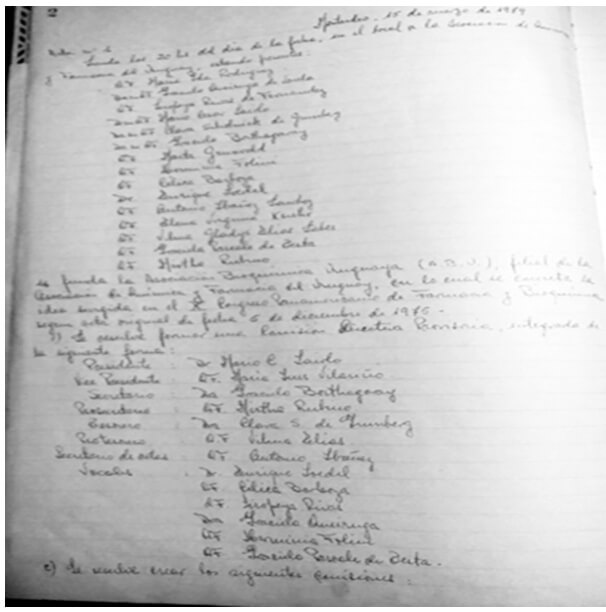 Montevideo, 15 de marzo de 1989
Acta nº 1
Siendo las 20 hs del día de la fecha, en el local de la Asociación de Química
y Farmacia del Uruguay, estando presentes:
QF María Rodríguez
Graciela Queiruga de Saldo
QF Rivas de Fernández
Mario Saldo
Clara de Grunberg
Graciela Borthagaray
QF Marta
QF Herminia Folini
QF Celica Barboza
Dr. Enrique Soedel
QF Antonio Ibáñez
QF Elena Virginia
QF Vilma Gladys Elias
QF Graciela de Berta
QF Mirtha Rubino
se funda la Asociación Bioquímica Uruguaya (A.B.U.), filial de la
Asociación de Química y Farmacia del Uruguay, con lo cual se concreta la
idea surgida en el X Congreso Panamericano de Farmacia y Bioquímica
según acta original de fecha 5 de diciembre de
1) Se resuelve formar una Comisión Directiva Provisoria, integrada de
la siguiente forma:
Presidente : Dr. Mario C. Saldo
Vice Presidente : QF. María Luz
Secretario : Dra Graciela Borthagaray
Prosecretario : QF. Mirtha Rubino
Tesorero : Dra Clara S. de Grunberg
Protesorero : QF Vilma Elias
Secretario de actas : QF Antonio Ibáñez
Vocales : Dr. Enrique Soedel
QF. Celica Barboza
QF. Rivas
Dra Graciela Queiruga
QF. Herminia Folini
QF. Graciela de Berta.
2) Se resuelve crear las siguientes comisiones: